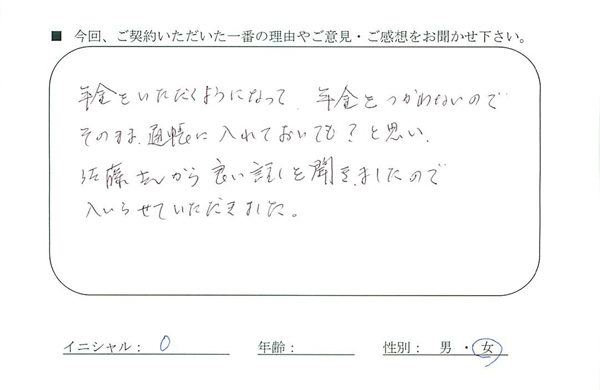 ■ 今回、ご契約いただいた一番の理由やご意見・ご感想をお聞かせ下さい。
年金をいただくようになって、年金をつかわないので
そのまま、通帳に入れておいても？と思い、
佐藤さんから良い話しを聞きましたので
入いらせていただきました。
イニシャル： O 年齢： 性別： 男 ・ 女